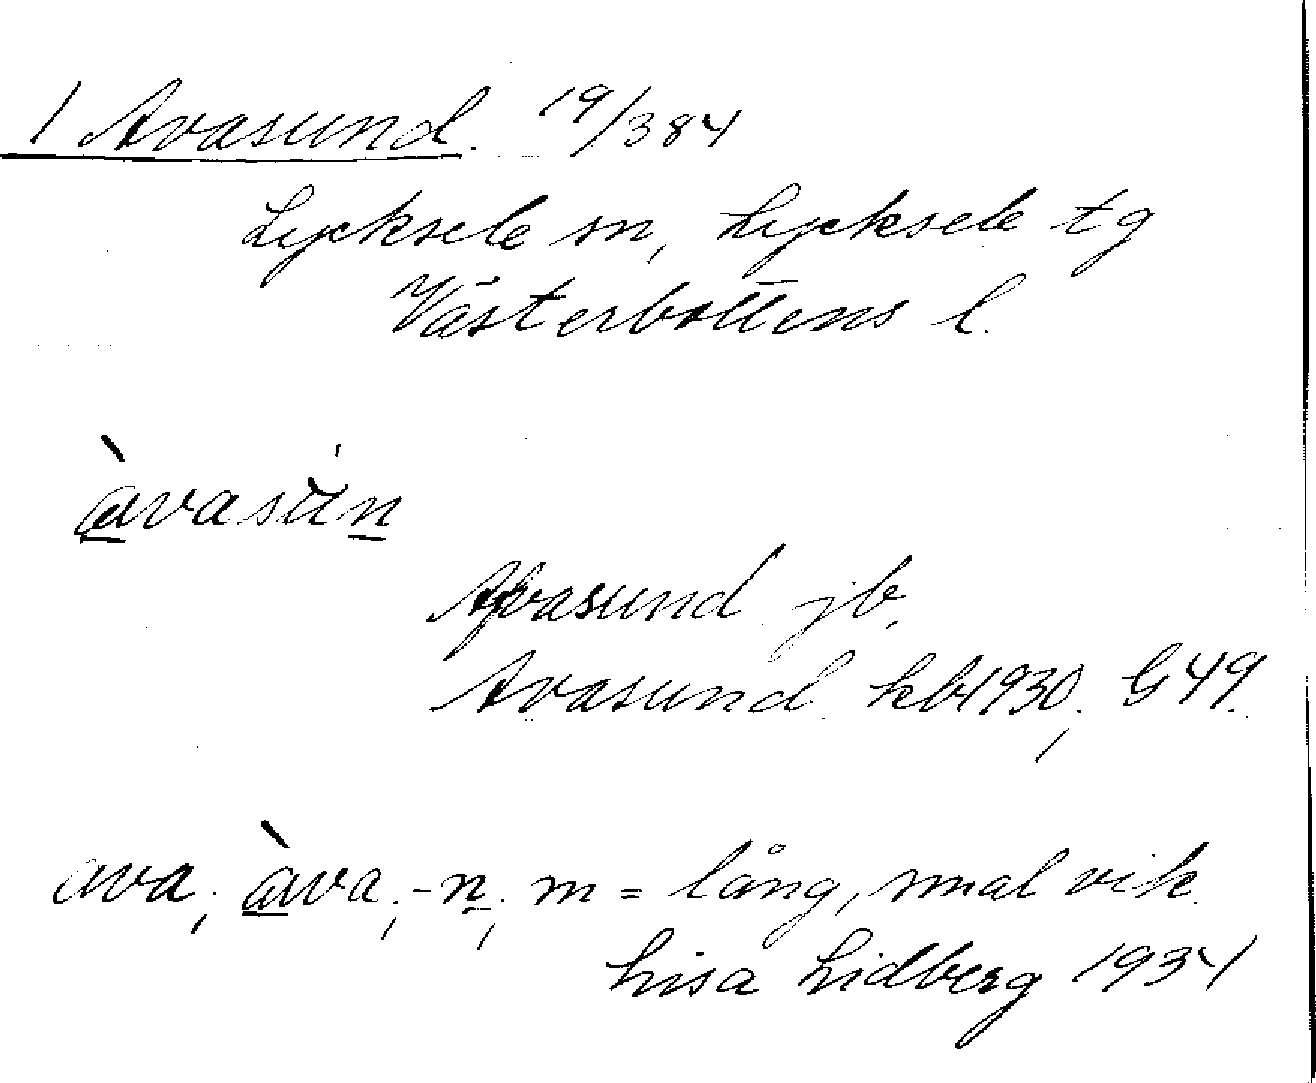 1 Avasund. 19/384
Lycksele sn, Lycksele tg
Västerbottens l.
àvasun
Afvasund jb.
Avasund kb1930, G 49.
ava; àva; -n; m = lång, smal vik.
Lisa Lidberg 1934